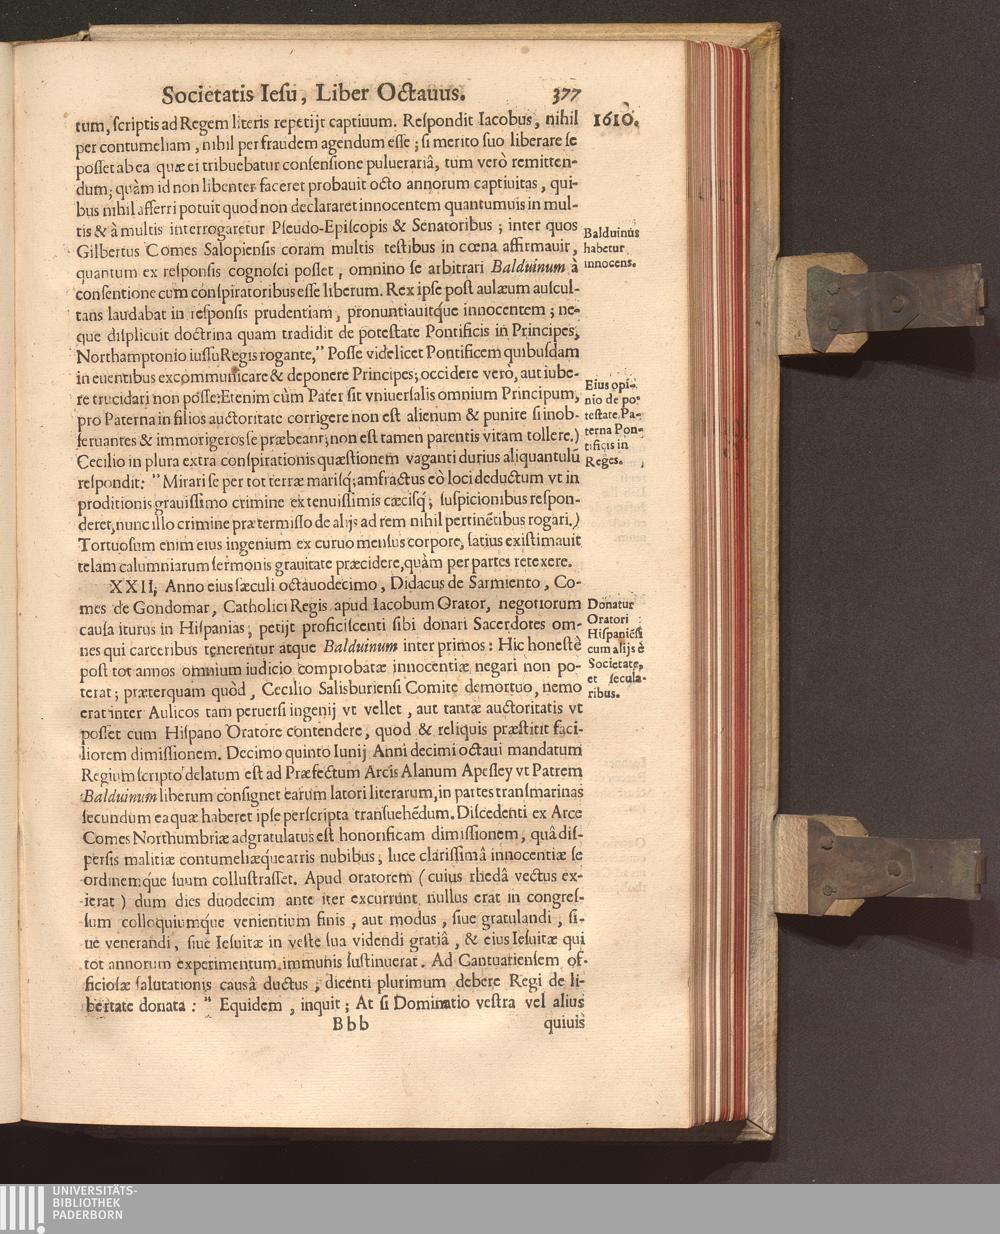 Societatis Iesu, Liber Octauus. 377
1610.
tum, scriptis ad Regem literis repetijt captiuum. Respondit Iacobus, nihil
per contumeliam, nihil per fraudem agendum esse; si merito suo liberare se
posset ab ea quæ ei tribuebatur consensione puluerariâ, tum verò remitten-
dum; quàm id non libenter faceret probauit octo annorum captiuitas, qui-
bus nihil afferri potuit quod non declararet innocentem quantumuis in mul-
tis & à multis interrogaretur Pseudo-Episcopis & Senatoribus; inter quos
Gilbertus Comes Salopiensis coram multis testibus in cœna affirmauit,
quantum ex responsis cognosci posset, omnino se arbitrari Balduinum à
consentione cum conspiratoribus esse liberum. Rex ipse post aulæum auscul-
tans laudabat in responsis prudentiam, pronuntiauitque innocentem; ne-
que displicuit doctrina quam tradidit de potestate Pontificis in Principes,
Northamptonio iussu Regis rogante," Posse videlicet Pontificem quibusdam
in euentibus excommunicare & deponere Principes; occidere verò, aut iube-
re trucidari non posse: Etenim cùm Pater sit vniuersalis omnium Principum,
pro Paterna in filios auctoritate corrigere non est alienum & punire si inob-
seruantes & immorigeros se præbeant; non est tamen parentis vitam tollere.)
Cecilio in plura extra conspirationis quæstionem vaganti durius aliquantulũ
respondit: " Mirari se per tot terræ marisq; amfractus eò loci deductum vt in
proditionis grauissimo crimine ex tenuissimis cæcisq; suspicionibus respon-
deret, nunc illo crimine prætermisso de alijs ad rem nihil pertinẽtibus rogari.)
Tortuosum enim eius ingenium ex curuo mensus corpore, satius existimauit
telam calumniarum sermonis grauitate præcidere, quàm per partes retexere.
XXII, Anno eius sæculi octauodecimo, Didacus de Sarmiento, Co-
mes de Gondomar, Catholici Regis apud Iacobum Orator, negotiorum
causa iturus in Hispanias, petijt proficiscenti sibi donari Sacerdotes om-
nes qui carceribus tenerentur atque Balduinum inter primos: Hic honestè
post tot annos omnium iudicio comprobatæ innocentiæ negari non po-
terat; præterquam quòd, Cecilio Salisburiensi Comite demortuo, nemo
erat inter Aulicos tam peruersi ingenij vt vellet, aut tantæ auctoritatis vt
posset cum Hispano Oratore contendere, quod & reliquis præstitit faci-
liorem dimissionem. Decimo quinto Iunij Anni decimi octaui mandatum
Regium scripto delatum est ad Præfectum Arcis Alanum Apesley vt Patrem
Balduinum liberum consignet earum latori literarum, in partes transmarinas
secundum ea quæ haberet ipse perscripta transuehẽdum. Discedenti ex Arce
Comes Northumbriæ adgratulatus est honorificam dimissionem, quâ dis-
persis malitiæ contumeliæque atris nubibus, luce clarissimâ innocentiæ se
ordinemque suum collustrasset. Apud oratorem (cuius rhedâ vectus ex-
ierat) dum dies duodecim ante iter excurrunt nullus erat in congres-
sum colloquiumque venientium finis, aut modus, siue gratulandi, si-
ue venerandi, siue Iesuitæ in veste sua videndi gratiâ, & eius Iesuitæ qui
tot annorum experimentum immunis sustinuerat. Ad Cantuariensem of-
ficiosæ salutationis causâ ductus, dicenti plurimum debere Regi de li-
bertate donata: " Equidem, inquit; At si Dominatio vestra vel alius
Bbb quiuis
Balduinus
habetur
innocens.
Eius opi-
nio de po-
testate Pa-
terna Pon-
tificis in
Reges.
Donatur
Oratori
Hispaniẽsi
cum alijs è
Societate,
et secula-
ribus.
UNIVERSITÄTS-
BIBLIOTHEK
PADERBORN